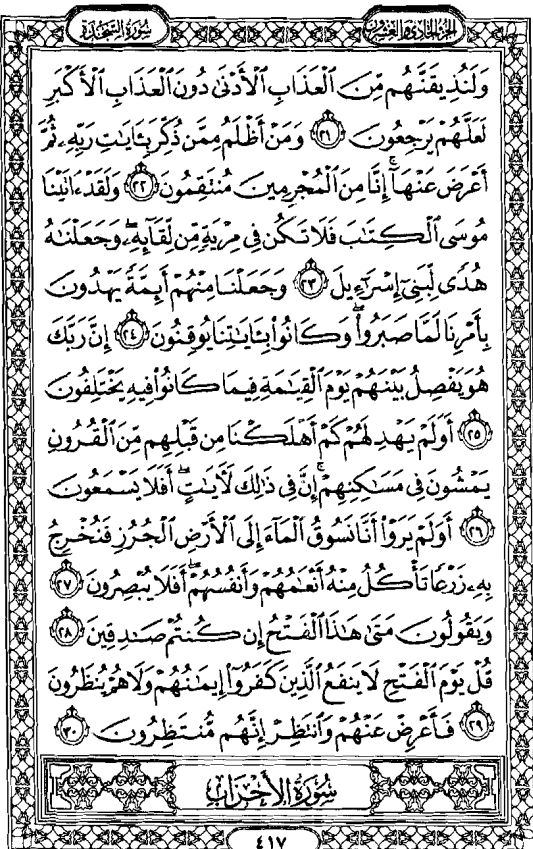 الجزء الحادي والعشرون
سورة السجدة
وَلَنُذِيقَنَّهُم مِّنَ ٱلْعَذَابِ ٱلْأَدْنَىٰ دُونَ ٱلْعَذَابِ ٱلْأَكْبَرِ
لَعَلَّهُمْ يَرْجِعُونَ ٢١ وَمَنْ أَظْلَمُ مِمَّن ذُكِّرَ بِـَٔايَٰتِ رَبِّهِۦ ثُمَّ
أَعْرَضَ عَنْهَآ ۚ إِنَّا مِنَ ٱلْمُجْرِمِينَ مُنتَقِمُونَ ٢٢ وَلَقَدْ ءَاتَيْنَا
مُوسَى ٱلْكِتَٰبَ فَلَا تَكُن فِى مِرْيَةٍ مِّن لِّقَآئِهِۦ ۖ وَجَعَلْنَٰهُ
هُدًى لِّبَنِىٓ إِسْرَٰٓءِيلَ ٢٣ وَجَعَلْنَا مِنْهُمْ أَئِمَّةً يَهْدُونَ
بِأَمْرِنَا لَمَّا صَبَرُوا۟ ۖ وَكَانُوا۟ بِـَٔايَٰتِنَا يُوقِنُونَ ٢٤ إِنَّ رَبَّكَ
هُوَ يَفْصِلُ بَيْنَهُمْ يَوْمَ ٱلْقِيَٰمَةِ فِيمَا كَانُوا۟ فِيهِ يَخْتَلِفُونَ
٢٥ أَوَلَمْ يَهْدِ لَهُمْ كَمْ أَهْلَكْنَا مِن قَبْلِهِم مِّنَ ٱلْقُرُونِ
يَمْشُونَ فِى مَسَٰكِنِهِمْ ۚ إِنَّ فِى ذَٰلِكَ لَءَايَٰتٍ ۖ أَفَلَا يَسْمَعُونَ
٢٦ أَوَلَمْ يَرَوْا۟ أَنَّا نَسُوقُ ٱلْمَآءَ إِلَى ٱلْأَرْضِ ٱلْجُرُزِ فَنُخْرِجُ
بِهِۦ زَرْعًا تَأْكُلُ مِنْهُ أَنْعَٰمُهُمْ وَأَنفُسُهُمْ ۖ أَفَلَا يُبْصِرُونَ ٢٧
وَيَقُولُونَ مَتَىٰ هَٰذَا ٱلْفَتْحُ إِن كُنتُمْ صَٰدِقِينَ ٢٨
قُلْ يَوْمَ ٱلْفَتْحِ لَا يَنفَعُ ٱلَّذِينَ كَفَرُوٓا۟ إِيمَٰنُهُمْ وَلَا هُمْ يُنظَرُونَ
٢٩ فَأَعْرِضْ عَنْهُمْ وَٱنتَظِرْ إِنَّهُم مُّنتَظِرُونَ ٣٠
سُورَةُ الأَحْزَابِ
٤١٧